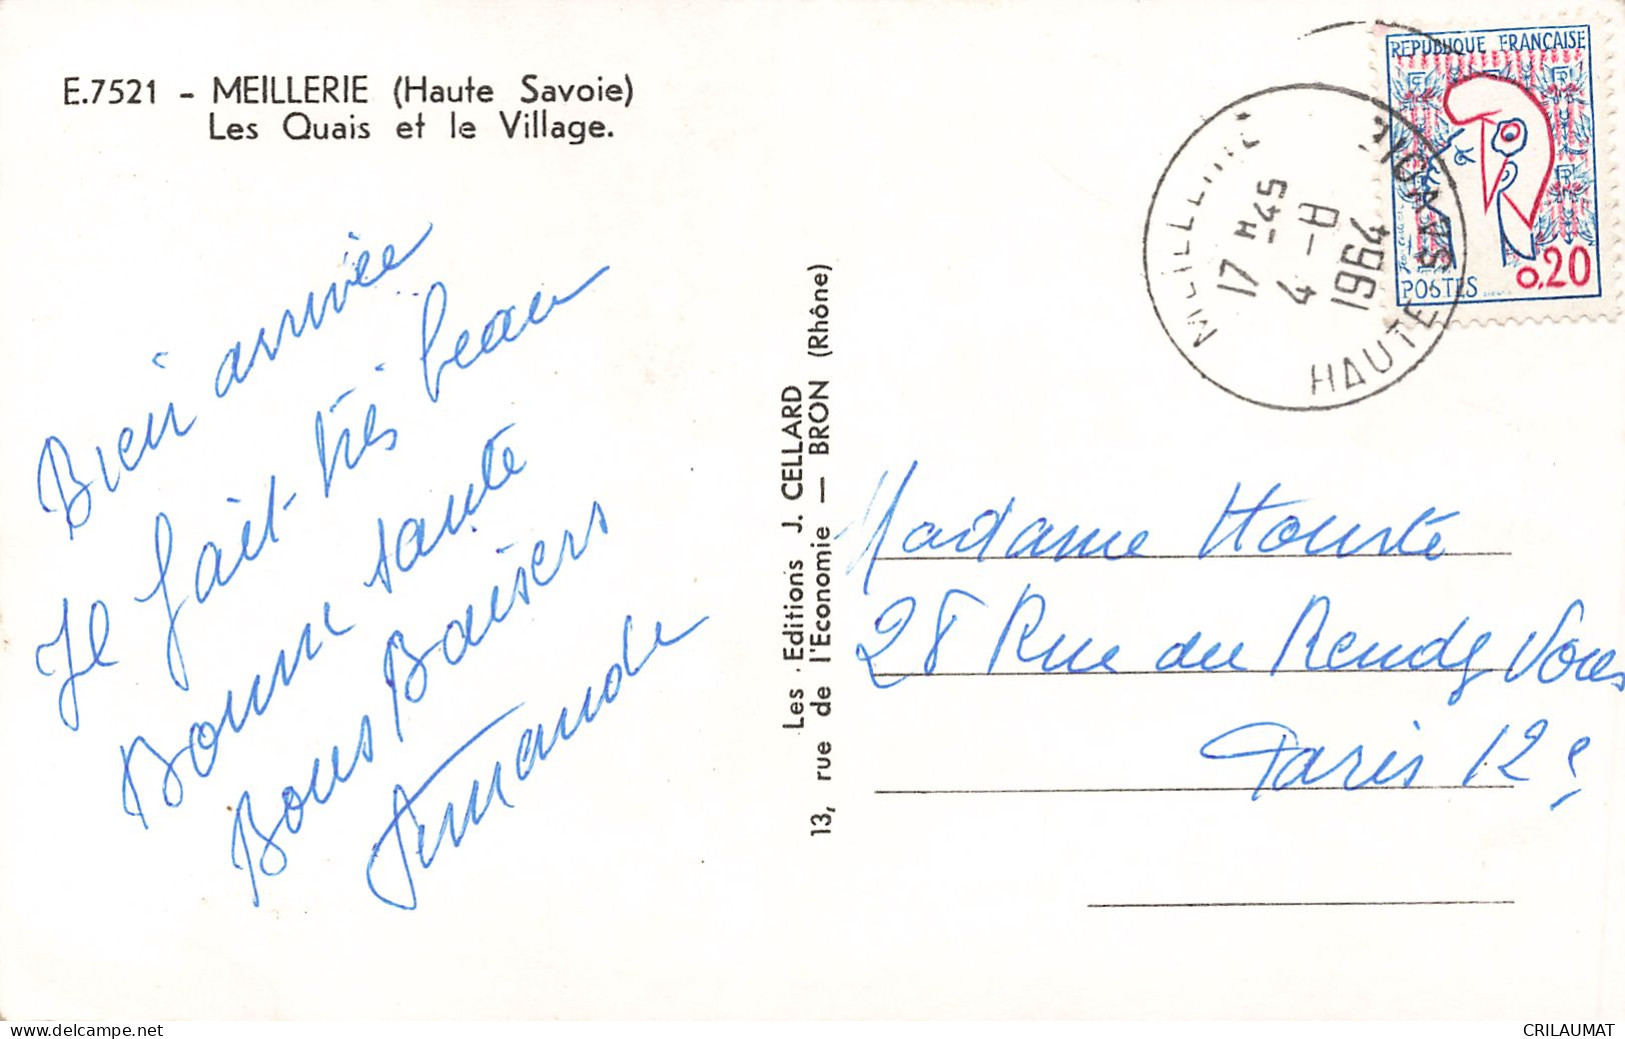 E.7521 - MEILLERIE (Haute Savoie)
Les Quais et le Village.
Bien arrivée
Il fait très beau
Bonne santé
Bons Baisers
Armande
Les Editions J. CELLARD
13, rue de l'Economie — BRON (Rhône)
REPUBLIQUE FRANÇAISE
0,20
POSTES
MEILLERIE
17 H 45
4 - 8
1964
HAUTE SAVOIE
Madame
28 Rue du Rendez Vous
Paris 12e
delcampe.net
CRILAUMAT